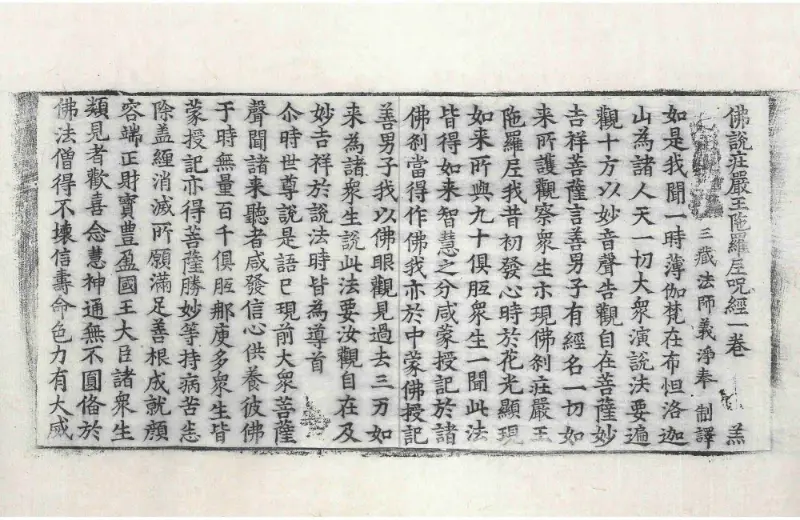 佛說莊嚴王陁羅尼呪經一卷 羔
三藏法師義淨奉 制譯
如是我聞一時薄伽梵在布怛洛迦
山為諸人天一切大衆演說法要遍
觀十方以妙音聲告觀自在菩薩妙
吉祥菩薩言善男子有經名一切如
来所護觀察衆生示現佛刹莊嚴王
陁羅尼我昔初發心時於花光顯現
如来所與九十俱胝衆生一聞此法
皆得如来智慧之分咸蒙授記於諸
佛刹當得作佛我亦於中蒙佛授記
善男子我以佛眼觀見過去三万如
来為諸衆生說此法要汝觀自在及
妙吉祥於說法時皆為導首
尒時世尊說是語已現前大衆菩薩
聲聞諸来聽者咸發信心供養彼佛
于時無量百千俱胝那庾多衆生皆
蒙授記亦得菩薩勝妙等持病苦悉
除盖纏消滅所願滿足善根成就顔
容端正財寶豊盈國王大臣諸衆生
類見者歡喜念慧神通無不圓俻於
佛法僧得不壞信壽命色力有大威